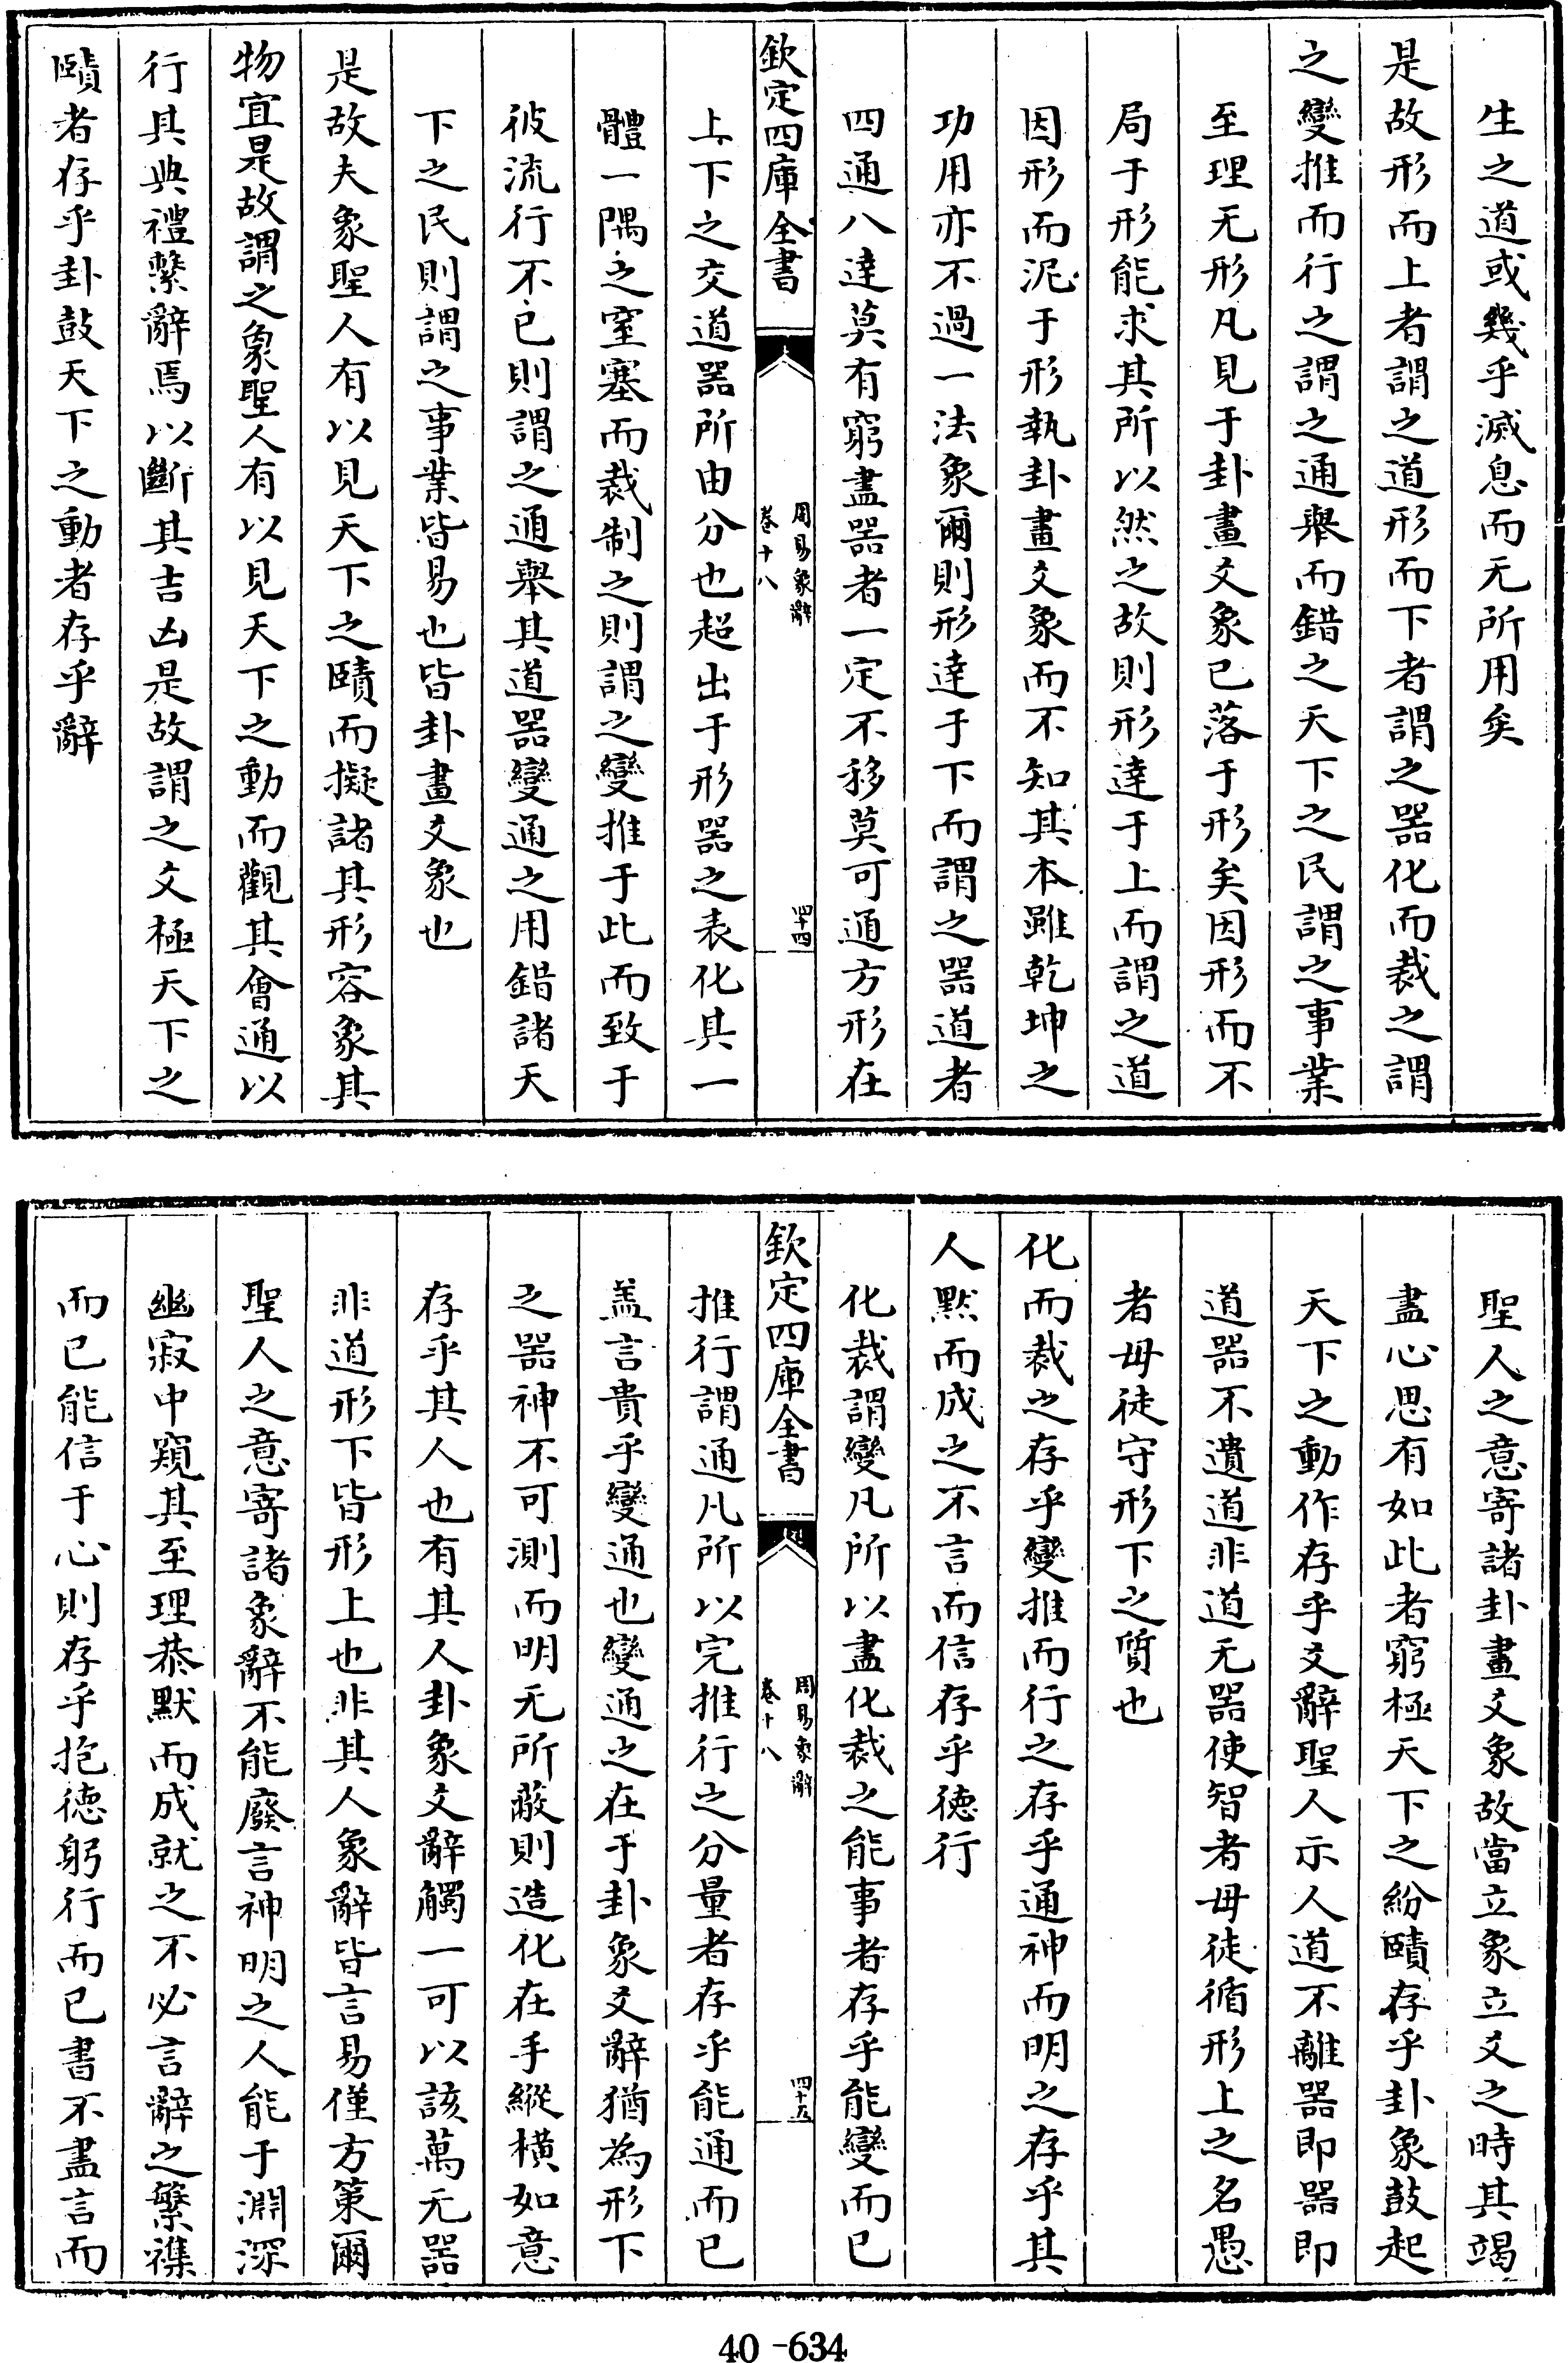 生之道或幾乎滅息而无所用矣
是故形而上者謂之道形而下者謂之器化而裁之謂
之變推而行之謂之通舉而錯之天下之民謂之事業
至理无形凡見于卦畫爻象已落于形矣因形而不
局于形能求其所以然之故則形達于上而謂之道
因形而泥于形執卦畫爻象而不知其本雖乾坤之
功用亦不過一法象爾則形達于下而謂之器道者
四通八達莫有窮盡器者一定不移莫可通方形在
欽定四庫全書
周易象辭
卷十八
四十四
上下之交道器所由分也超出于形器之表化其一
體一隅之窒塞而裁制之則謂之變推于此而致于
彼流行不已則謂之通舉其道器變通之用錯諸天
下之民則謂之事業皆易也皆卦畫爻象也
是故夫象聖人有以見天下之賾而擬諸其形容象其
物宜是故謂之象聖人有以見天下之動而觀其會通以
行其典禮繫辭焉以斷其吉凶是故謂之爻極天下之
賾者存乎卦鼓天下之動者存乎辭
聖人之意寄諸卦畫爻象故當立象立爻之時其竭
盡心思有如此者窮極天下之紛賾存乎卦象鼓起
天下之動作存乎爻辭聖人示人道不離器即器即
道器不遺道非道无器使智者毋徒循形上之名愚
者毋徒守形下之質也
化而裁之存乎變推而行之存乎通神而明之存乎其
人黙而成之不言而信存乎徳行
化裁謂變凡所以盡化裁之能事者存乎能變而已
欽定四庫全書
周易象辭
卷十八
四十五
推行謂通凡所以完推行之分量者存乎能通而已
盖言貴乎變通也變通之在于卦象爻辭猶為形下
之器神不可測而明无所蔽則造化在手縱横如意
存乎其人也有其人卦象爻辭觸一可以該萬无器
非道形下皆形上也非其人象辭皆言易僅方策爾
聖人之意寄諸象辭不能廢言神明之人能于淵深
幽寂中窺其至理恭默而成就之不必言辭之繁襍
而已能信于心則存乎抱徳躬行而已書不盡言而
40-634